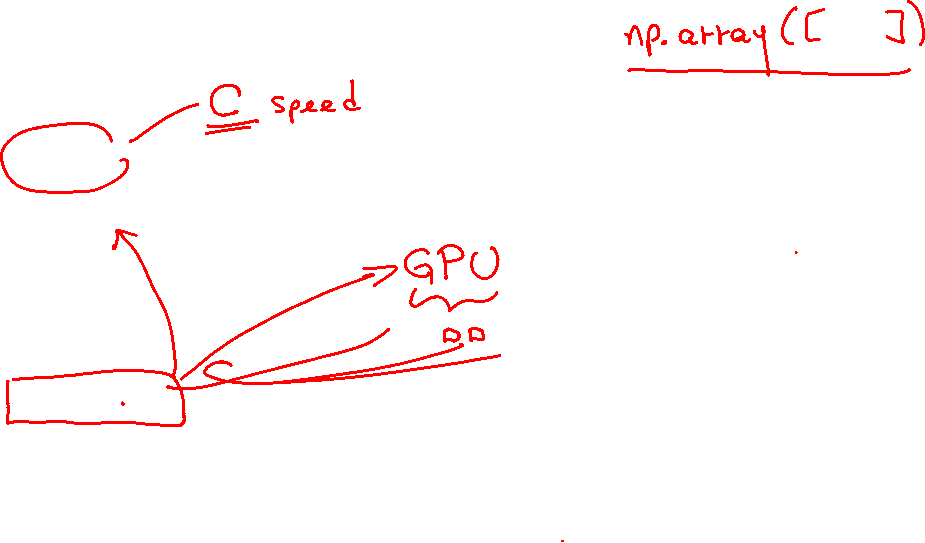 np.array([ ])
C speed
GPU